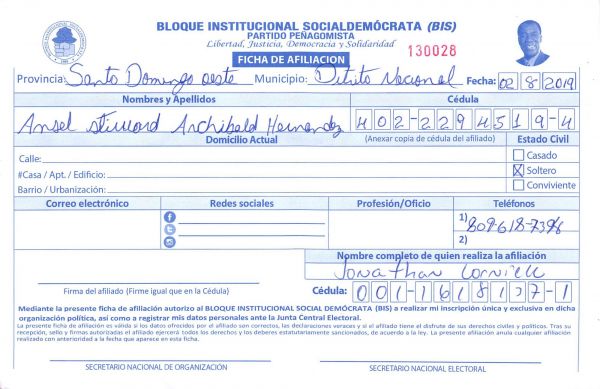 BLOQUE INSTITUCIONAL SOCIALDEMÓCRATA (BIS)
PARTIDO PEÑAGOMISTA
Libertad, Justicia, Democracia y Solidaridad
130028
FICHA DE AFILIACION
Provincia: Santo Domingo oeste Municipio: Ditrito Nacional Fecha: 02 8 2019
Nombres y Apellidos Cédula
Ansel Archibald Hernandez 402-2294519-4
Domicilio Actual (Anexar copia de cédula del afiliado) Estado Civil
Calle: Casado
#Casa / Apt. / Edificio: X Soltero
Barrio / Urbanización: Conviviente
Correo electrónico Redes sociales Profesión/Oficio Teléfonos
1) 809-618-7396
2)
Nombre completo de quien realiza la afiliación
Jonathan
Firma del afiliado (Firme igual que en la Cédula) Cédula: 001-1618137-1
Mediante la presente ficha de afiliación autorizo al BLOQUE INSTITUCIONAL SOCIAL DEMÓCRATA (BIS) a realizar mi inscripción única y exclusiva en dicha
organización política, así como a registrar mis datos personales ante la Junta Central Electoral.
La presente ficha de afiliación es válida si los datos ofrecidos por el afiliado son correctos, las declaraciones veraces y si el afiliado tiene el disfrute de sus derechos civiles y políticos. Tras su
recepción, sello y firmas autorizadas el afiliado ejercerá todos los derechos y los deberes estatutariamente sancionados, de acuerdo a la ley. La presente afiliación anula cualquier afiliación
realizada con anterioridad a la fecha que aparece en esta ficha.
SECRETARIO NACIONAL DE ORGANIZACIÓN SECRETARIO NACIONAL ELECTORAL